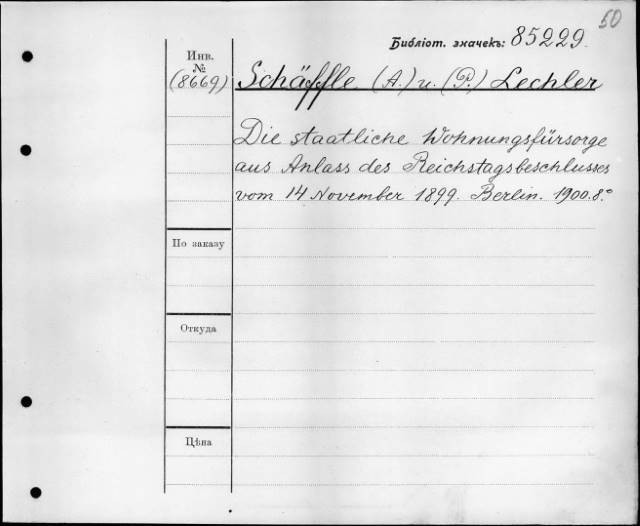 50
Библіот. значекъ: 85229.
Инв.
№
(8669)
Schäffle (A.) u. (P.) Lechler
Die staatliche Wohnungsfürsorge
aus Anlass des Reichstagsbeschlusses
vom 14 November 1899. Berlin. 1900. 8.°
По заказу
Откуда
Цѣна